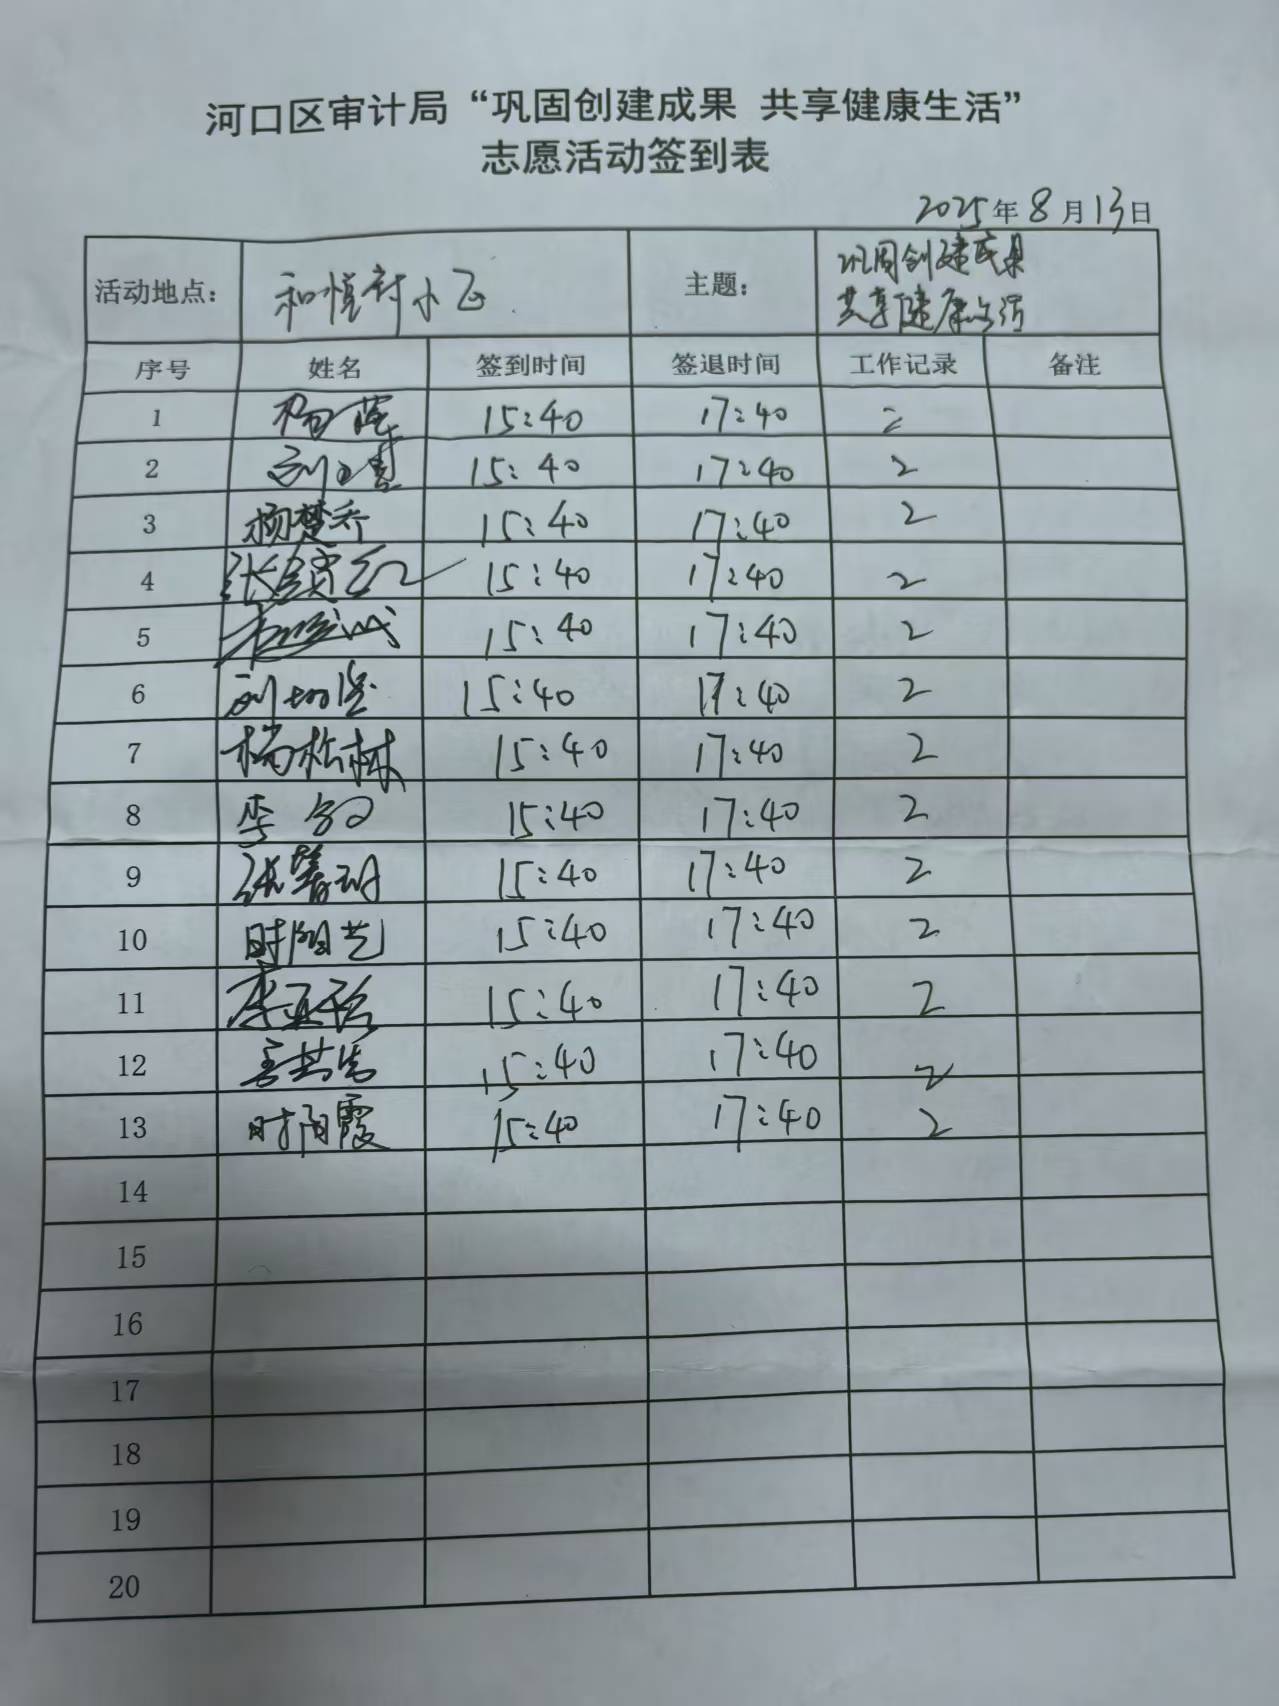 河口区审计局“巩固创建成果 共享健康生活”
志愿活动签到表
2025年8月13日
活动地点： 和悦 小区 主题： 巩固创建成果
共享健康生活
序号 姓名 签到时间 签退时间 工作记录 备注
1 杨莲 15:40 17:40 2
2 15:40 17:40 2
3 杨楚乔 15:40 17:40 2
4 15:40 17:40 2
5 15:40 17:40 2
6 15:40 17:40 2
7 杨松林 15:40 17:40 2
8 15:40 17:40 2
9 15:40 17:40 2
10 时阳艺 15:40 17:40 2
11 15:40 17:40 2
12 15:40 17:40 2
13 时阳霞 15:40 17:40 2
14
15
16
17
18
19
20